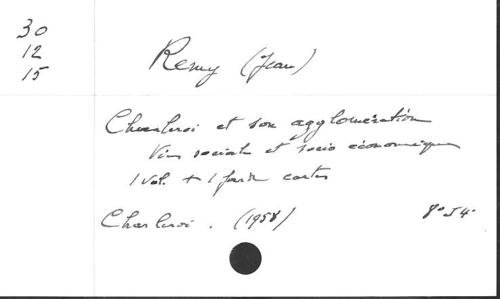 30
12
15
Remy (Jean)
Charleroi et son agglomération
Vie sociale et socio économique
1 vol. + 1 farde cartes
Charleroi. (1958) 8° 54.